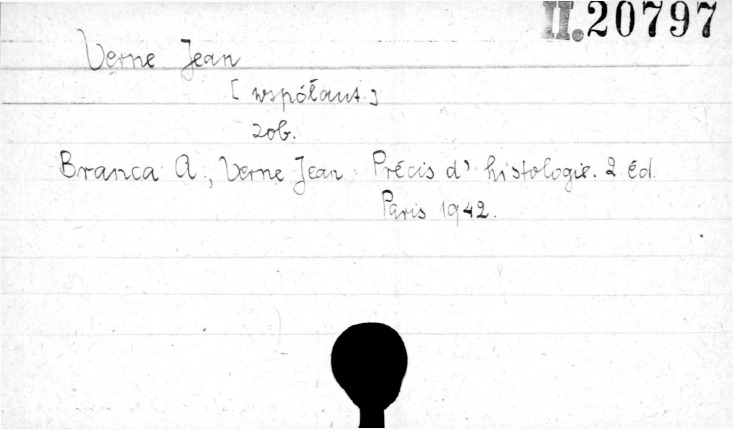 II.20797
Verne Jean
[współaut.]
zob.
Branca A., Verne Jean. Précis d' histologie. 2 éd.
Paris 1942.